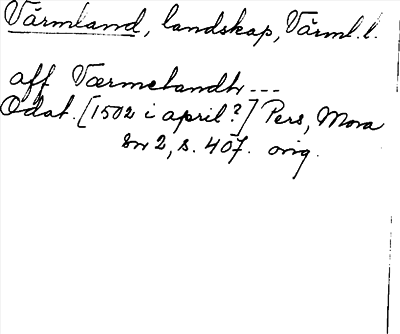 Värmland, landskap, Värml. l.
aff Værmelandh ---
Odat. [1502 i april?] Pers, Mora
Sn 2, s. 407. orig.